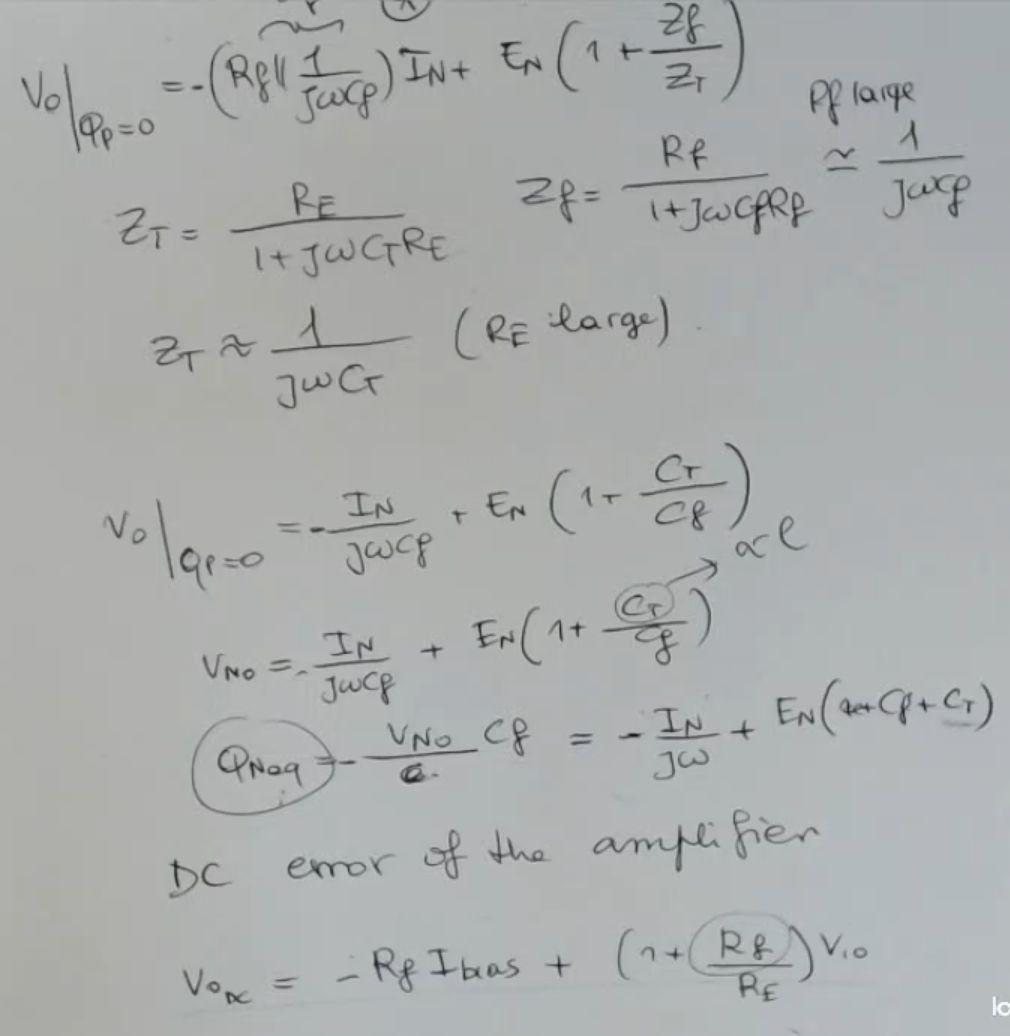 Vo|Qp=0 = -(Rf || 1/jωCf) IN + EN (1 + Zf/ZT)
Rf large
ZT = RE/1+jωCTRE Zf = Rf/1+jωCfRf ≃ 1/jωCf
ZT ≈ 1/jωCT (RE large).
Vo|qp=0 = - IN/jωCf + EN (1+ CT/Cf)
∝ l
VNO = - IN/jωCf + EN(1+ CT/Cf)
QNeq = - VNO/ Cf = - IN/jω + EN( Cf + CT)
DC error of the amplifier
VoDC = - Rf Ibias + (1+ Rf/RE) Vio
lo